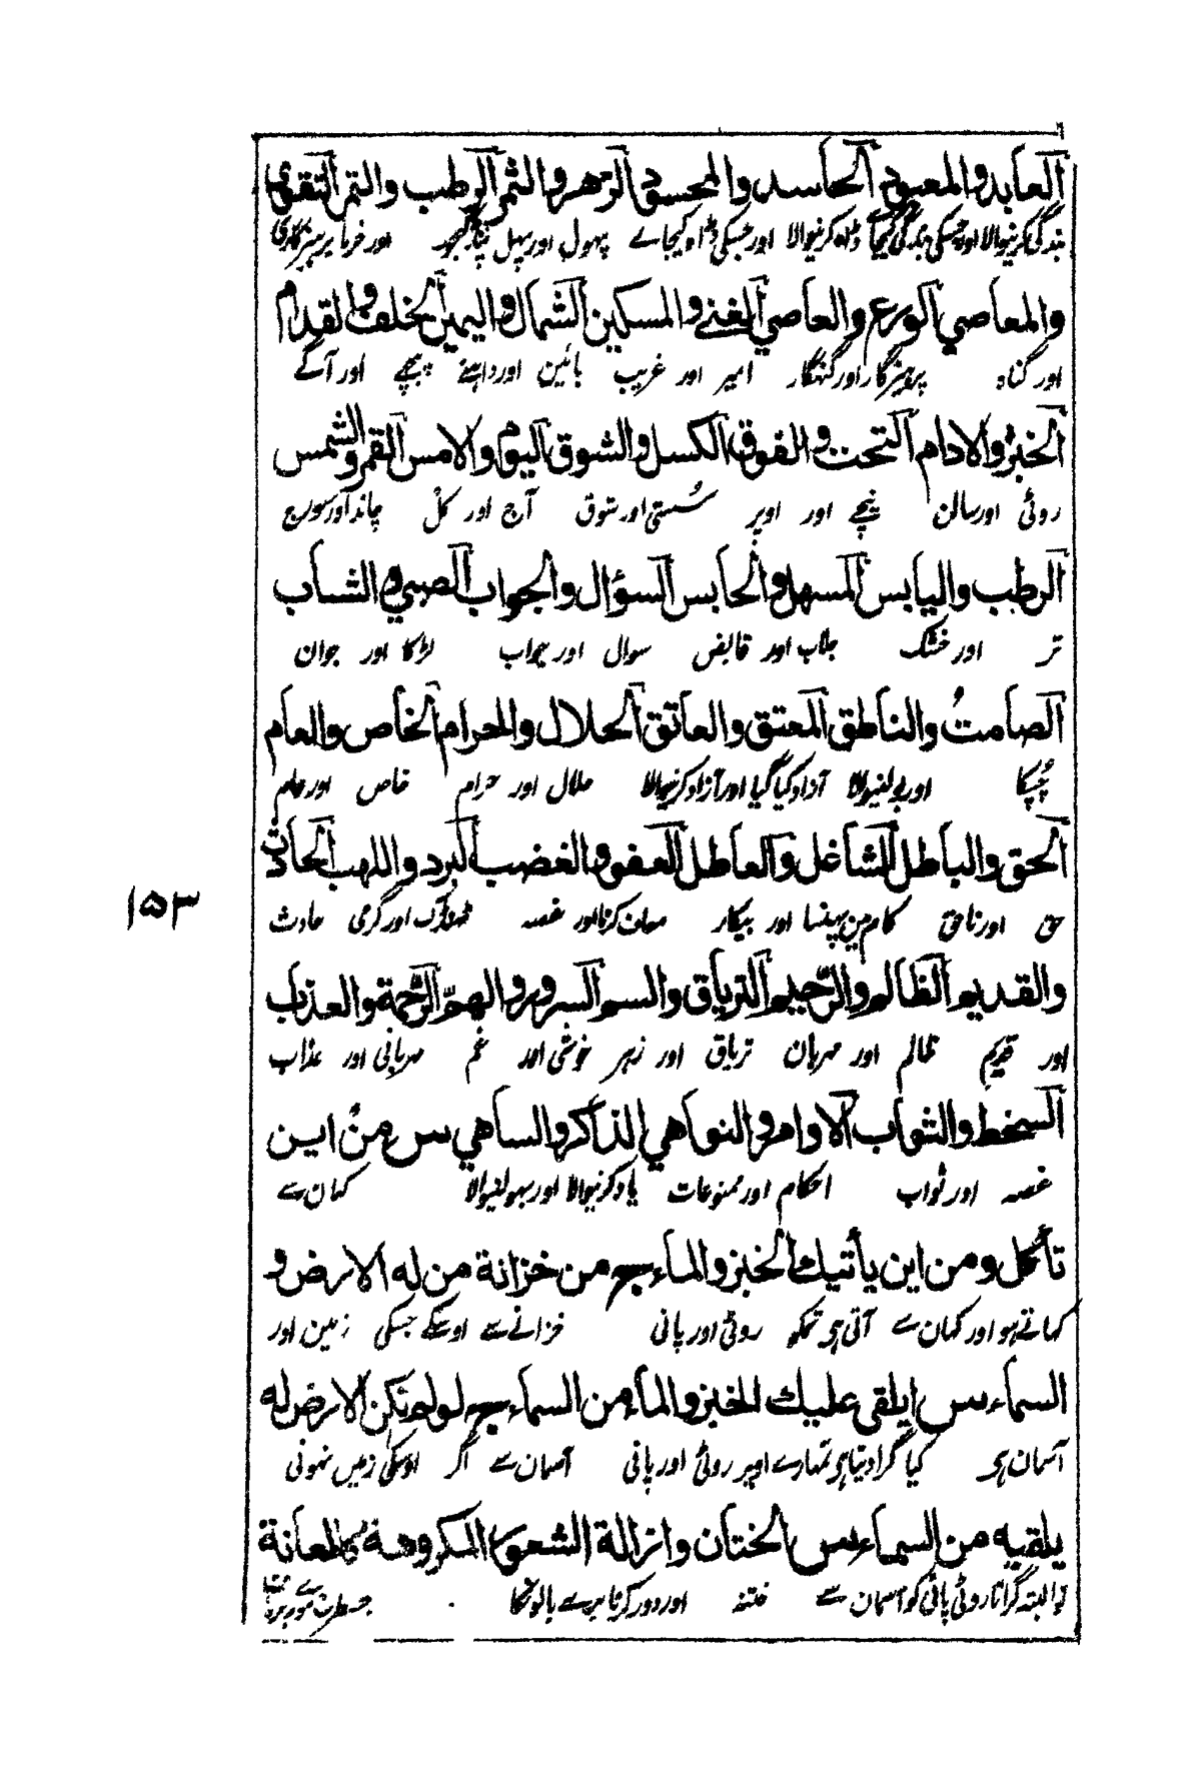 العابد والمعبود الحاسد والمحسود الزهر والثمر الرطب والتمر التقوى
بندگی کرنیوالا اور جسکی بندگی کیجا وڈاہ کرنیوالا اور جسکی ڈاہ کیجاے پہول اور پہل اور خرما پرہیزگاری
والمعاصي الورع والعاصي الغني والمسكين الشمال واليمين الخلف والقدام
اور گناہ پرہیزگار اور گنہگار امیر اور غریب بائین اور داہنے پیچہے اور آگے
الخبز والادام التحت والفوق الكسل والشوق اليوم والامس القمر والشمس
روٹی اور سالن نیچے اور اوپر سستی اور شوق آج اور کل چاند اور سورج
الرطب واليابس المسهل والحابس السؤال والجواب الصبي والشاب
تر اور خشک جلاب اور قابض سوال اور جواب لڑکا اور جوان
الصامتُ والناطق المعتق والعاتق الحلال والحرام الخاص والعام
چُپکا اور بولنیوالا آزاد کیا گیا اور آزاد کرنیوالا حلال اور حرام خاص اور عام
الحق والباطل الشاغل والعاطل العفو والغضب البرد واللهب الحادث
حق اور ناحق کام مین پہنسا اور بیکار معاف کرنا اور غصہ ٹھنڈک اور گرمی حادث
۱۵۳
والقديم الظالم والرّحيم الترياق والسم السرور والهمّ الرّحمة والعذاب
اور قدیم ظالم اور مہربان تریاق اور زہر خوشی اور غم مہربانی اور عذاب
السخط والثواب الاوامر والنواهي الذاكر والساهي س من اين
غصہ اور ثواب احکام اور ممنوعات یاد کرنیوالا اور بہولنیوالا کہان سے
تأكل ومن اين يأتيك الخبز والماء ج من خزانة من له الارض و
کہاتے ہو اور کہان سے آتی ہی تمکو روٹی اور پانی خزانے سے اوسکے جسکی زمین اور
السماء س ايلقى عليك الخبز والماء من السماء ج لو لم تكن الارض له
آسمان ہی کیا گرا دیتا ہی تمہارے اوپر روٹی اور پانی آسمان سے اگر اوسکی زمین نہوتی
يلقيه من السماء س الختان وازالة الشعور المكروهة كالعانة
تو البتہ گراتا روٹی پانی کو آسمان سے ختنہ اور دور کرنا برے بالونکا